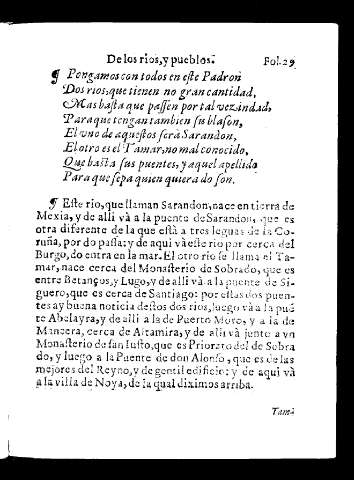 De los rios, y pueblos. Fol. 29
¶ Pongamos con todos en este Padron
Dos rios, que tienen no gran cantidad,
Mas basta que passen por tal vezindad,
Para que tengan tambien su blason,
El vno de aquestos serà Sarandon,
El otro es el Tamar, no mal conocido,
Que basta sus puentes, y aquel apellido
Para que sepa quien quiera do son.
¶ Este rio, que llaman Sarandon, nace en tierra de
Mexia, y de alli và a la puente de Sarandon, que es
otra diferente de la que està a tres leguas de la Co-
ruña, por do passa; y de aqui và este rio por cerca del
Burgo, do entra en la mar. El otro rio se llama el Ta-
mar, nace cerca del Monasterio de Sobrado, que es
entre Betanços, y Lugo, y de alli và a la puente de Si-
guero, que es cerca de Santiago: por estas dos puen-
tes ay buena noticia destos dos rios, luego và a la puẽ
te Abelayra, y de alli a la de Puerto Moro, y a la de
Mancera, cerca de Altamira, y de alli và junto a vn
Monasterio de san Iusto, que es Priorato del de Sobra
do, y luego a la Puente de don Alonso, que es de las
mejores del Reyno, y de gentil edificio: y de aqui và
à la villa de Noya, de la qual diximos arriba.
Tamã